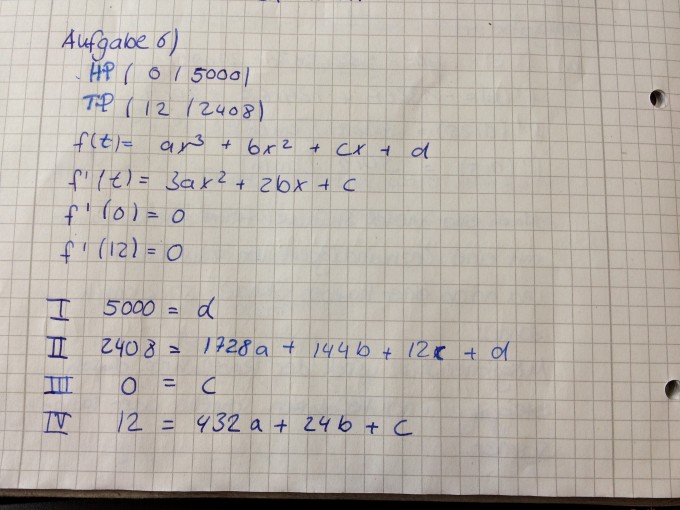 Aufgabe 6)
HP ( 0 / 5000)
TP ( 12 / 2408)
f(t) = ax³ + bx² + cx + d
f'(t) = 3ax² + 2bx + c
f'(0) = 0
f'(12) = 0
I 5000 = d
II 2408 = 1728a + 144b + 12c + d
III 0 = c
IV 12 = 432a + 24b + c